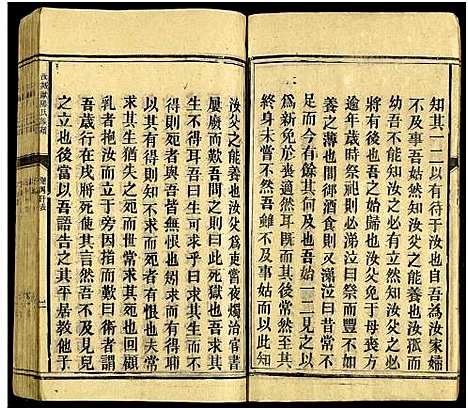 知其一二以有待于汝也自吾為汝家婦
不及事吾姑然知汝父之能養也汝孤而
幼吾不能知汝之必有立然知汝父之必
將有後也吾之始歸也汝父免于母喪方
逾年歲時祭祀則必涕泣曰祭而豐不如
養之薄也間御酒食則又涕泣曰昔常不
足而今有餘其何及也吾始一二見之以
為新免於喪適然耳既而其後常然至其
終身未嘗不然吾雖不及事姑而以此知
汝父之能養也汝父為吏嘗夜燭治官書
屢廢而歎吾問之則曰此死獄也吾求其
生不得耳吾曰生可求乎曰求其生而不
得則死者與吾皆無恨也矧求而有得耶
以其有得則知不求而死者有恨也夫常
求其生猶失之死而世常求其死也回顧
乳者抱汝而立于旁因指而歎曰術者謂
吾歲行在戌將死使其言然吾不及見兒
之立也後當以吾語告之其平居教他子